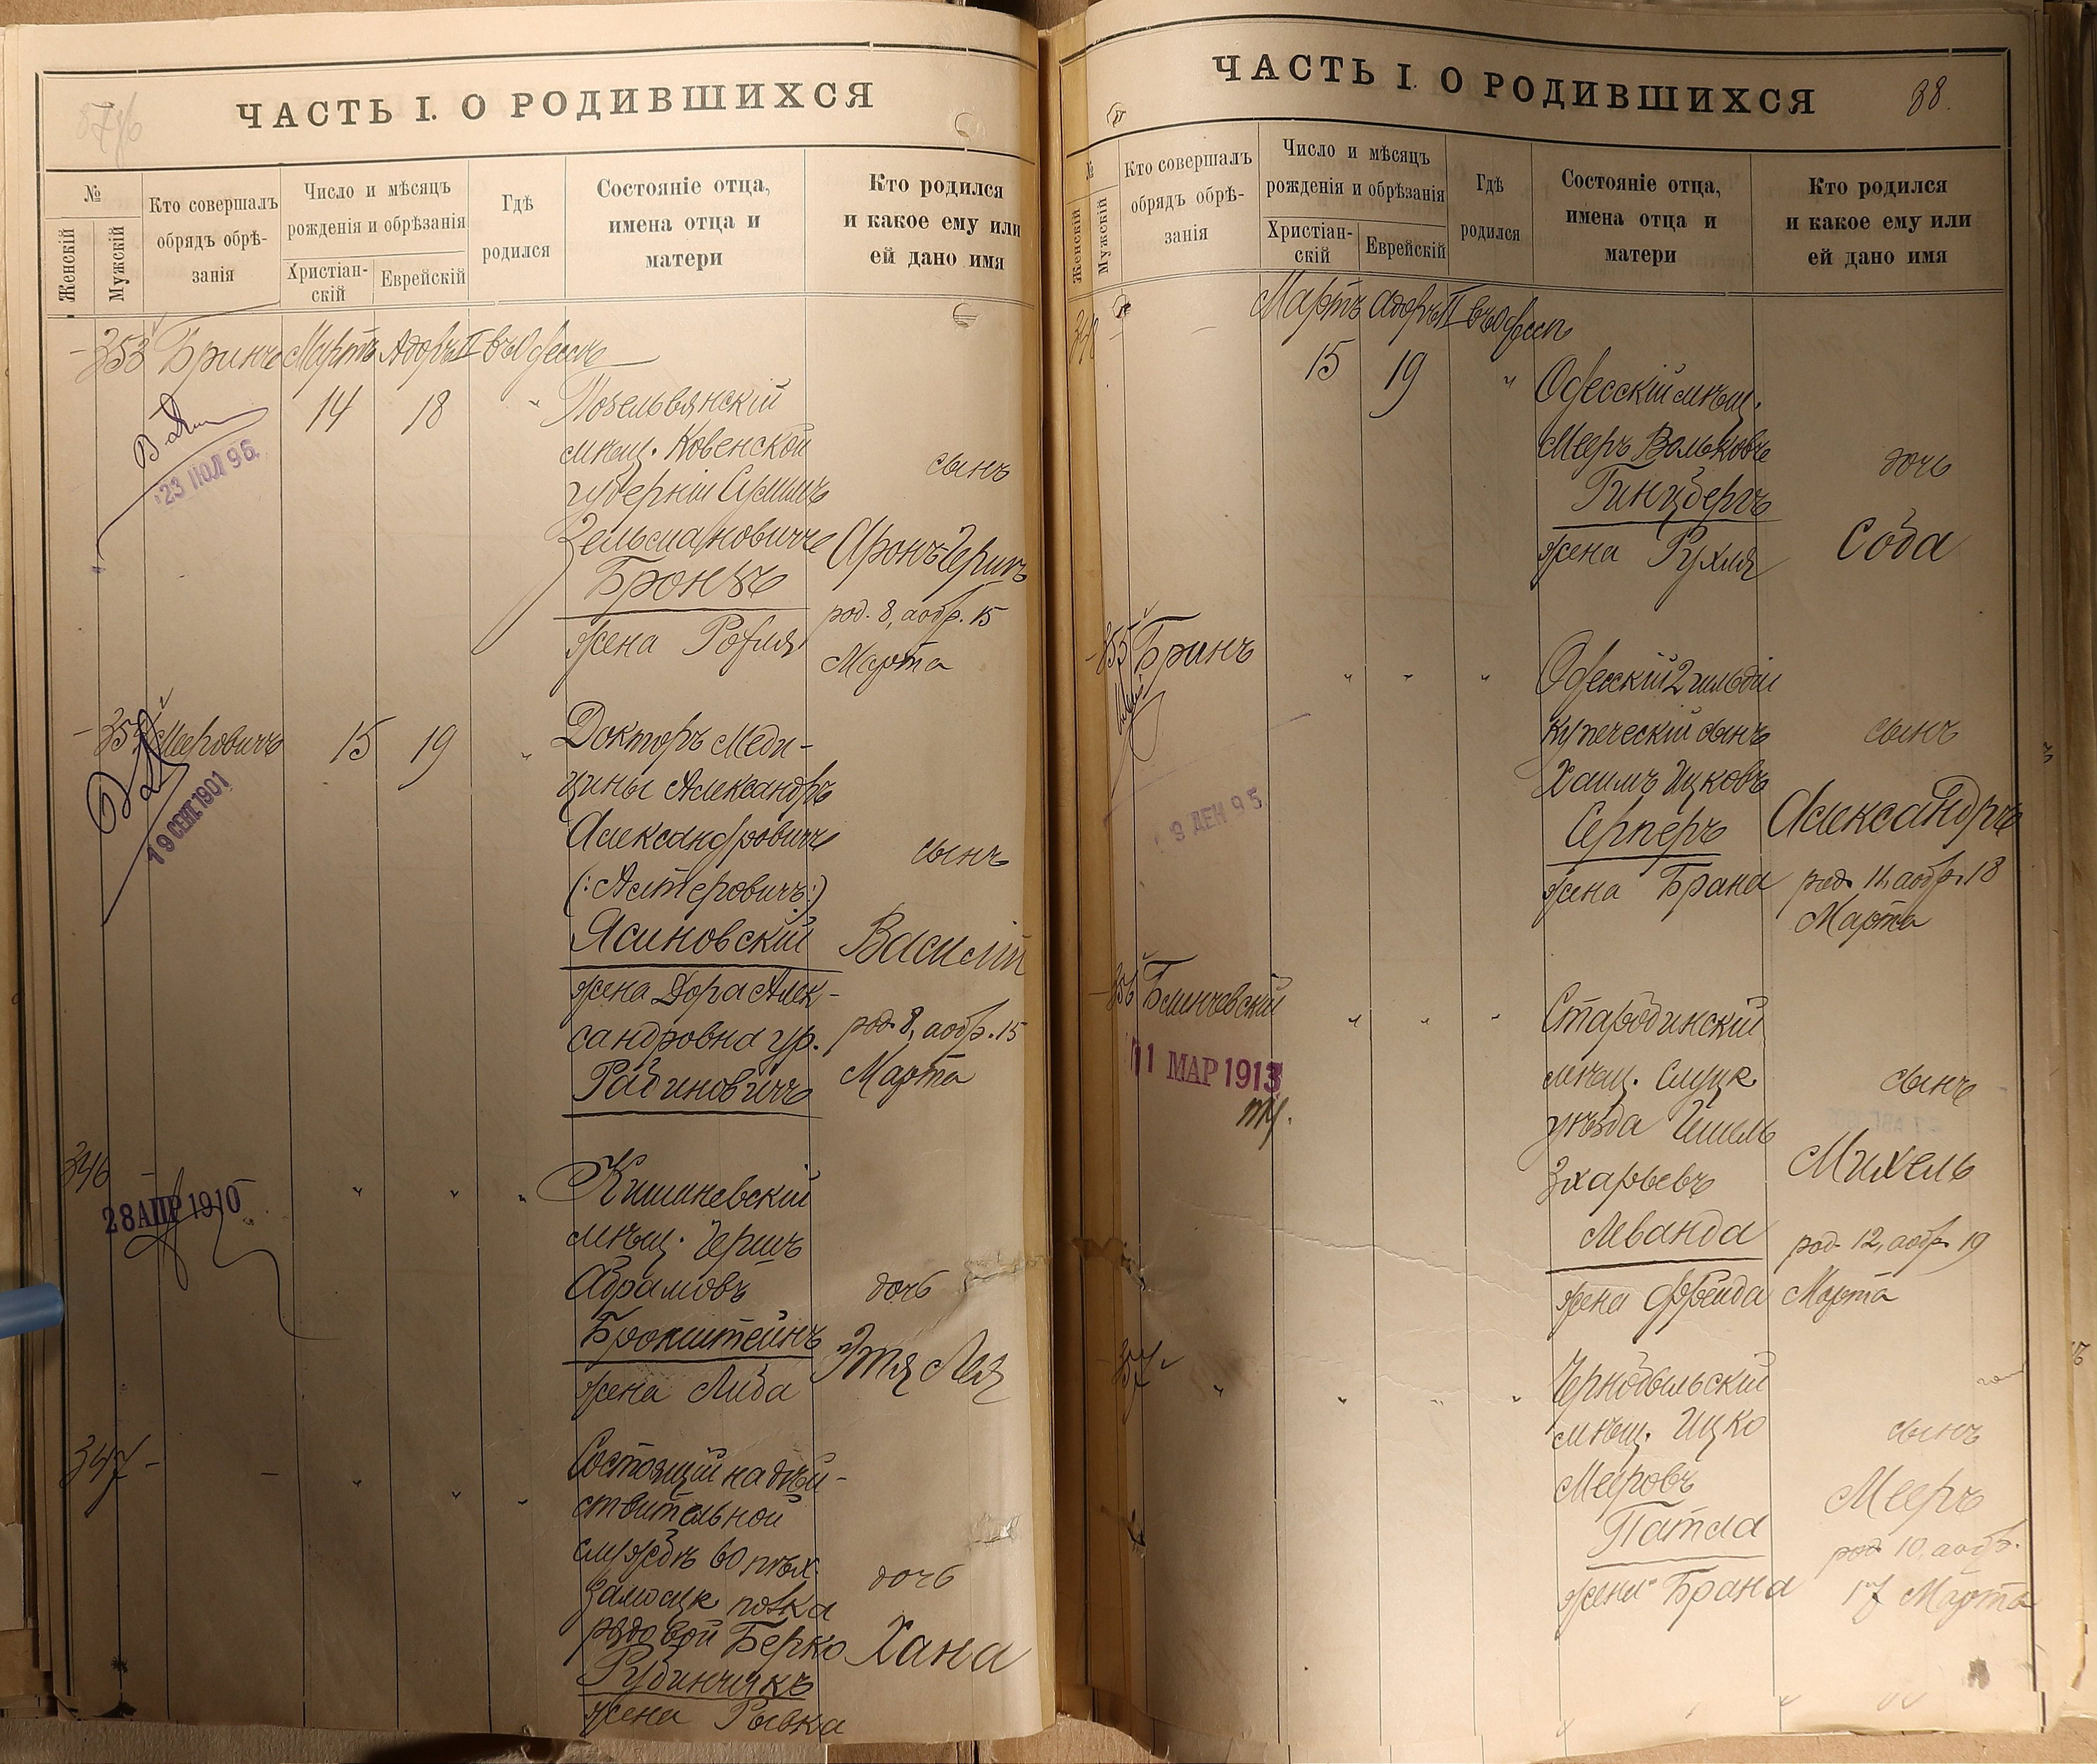 ЧАСТЬ I. О РОДИВШИХСЯ
№
Женскій
Мужскій
Кто совершалъ
обрядъ обрѣ-
занія
Число и мѣсяцъ
рожденія и обрѣзанія
Христіан-
скій
Еврейскій
Гдѣ
родился
Состояніе отца,
имена отца и
матери
Кто родился
и какое ему или
ей дано имя
353 Бринъ Мартъ Адоръ II въ Одессѣ
14 18 "
23 ІЮЛ 96
мѣщ. Ковенской
губерніи
Зельмановичъ
Бронъ
жена
сынъ
Аронъ Герш
род. 8, а обр. 15
Марта
354 Мееровичъ 15 19 "
19 СЕНТ. 1901
Докторъ Меди-
цины Александръ
Александровичъ
(:Алтеровичъ:)
Ясиновскій
жена Дора Алек-
сандровна ур.
Рабиновичъ
сынъ
Василій
род. 8, а обр. 15
Марта
346 - " " "
28 АПР 1910
Кишиневскій
мѣщ. Гершъ
Абрамовъ
Бронштейнъ
жена Либа
дочь
Этя Лея
347 - - " " "
Состоящій на дѣй-
ствительной
службѣ во пѣх.
Замосцк полка
рядовой Берко
Рубинчикъ
жена Рывка
дочь
Хана
ЧАСТЬ I. О РОДИВШИХСЯ
88.
№
Женскій
Мужскій
Кто совершалъ
обрядъ обрѣ-
занія
Число и мѣсяцъ
рожденія и обрѣзанія
Христіан-
скій
Еврейскій
Гдѣ
родился
Состояніе отца,
имена отца и
матери
Кто родился
и какое ему или
ей дано имя
348 - - Мартъ Адоръ II въ Одессѣ
15 19 "
Одесскій мѣщ.
Мееръ Вольковъ
Гинцбергъ
жена Рухля
дочь
Соба
355 Бринъ " " "
9 ДЕК 95
Одесскій 2 гильдіи
купеческій сынъ
Хаимъ Ицковъ
Серперъ
жена Брана
сынъ
Александръ
род. 11, а обр. 18
Марта
356 Блинчевскій " " "
11 МАР 1913
Старобинскій
мѣщ. Слуцк.
уѣзда
Зхарьевъ
Леванда
жена Фрейда
сынъ
Михель
род. 12, а обр. 19
Марта
357 " " " "
Чернобыльскій
мѣщ. Ицко
Мееровъ
Патла
жена Брана
сынъ
Мееръ
род. 10, а обр.
17 Марта